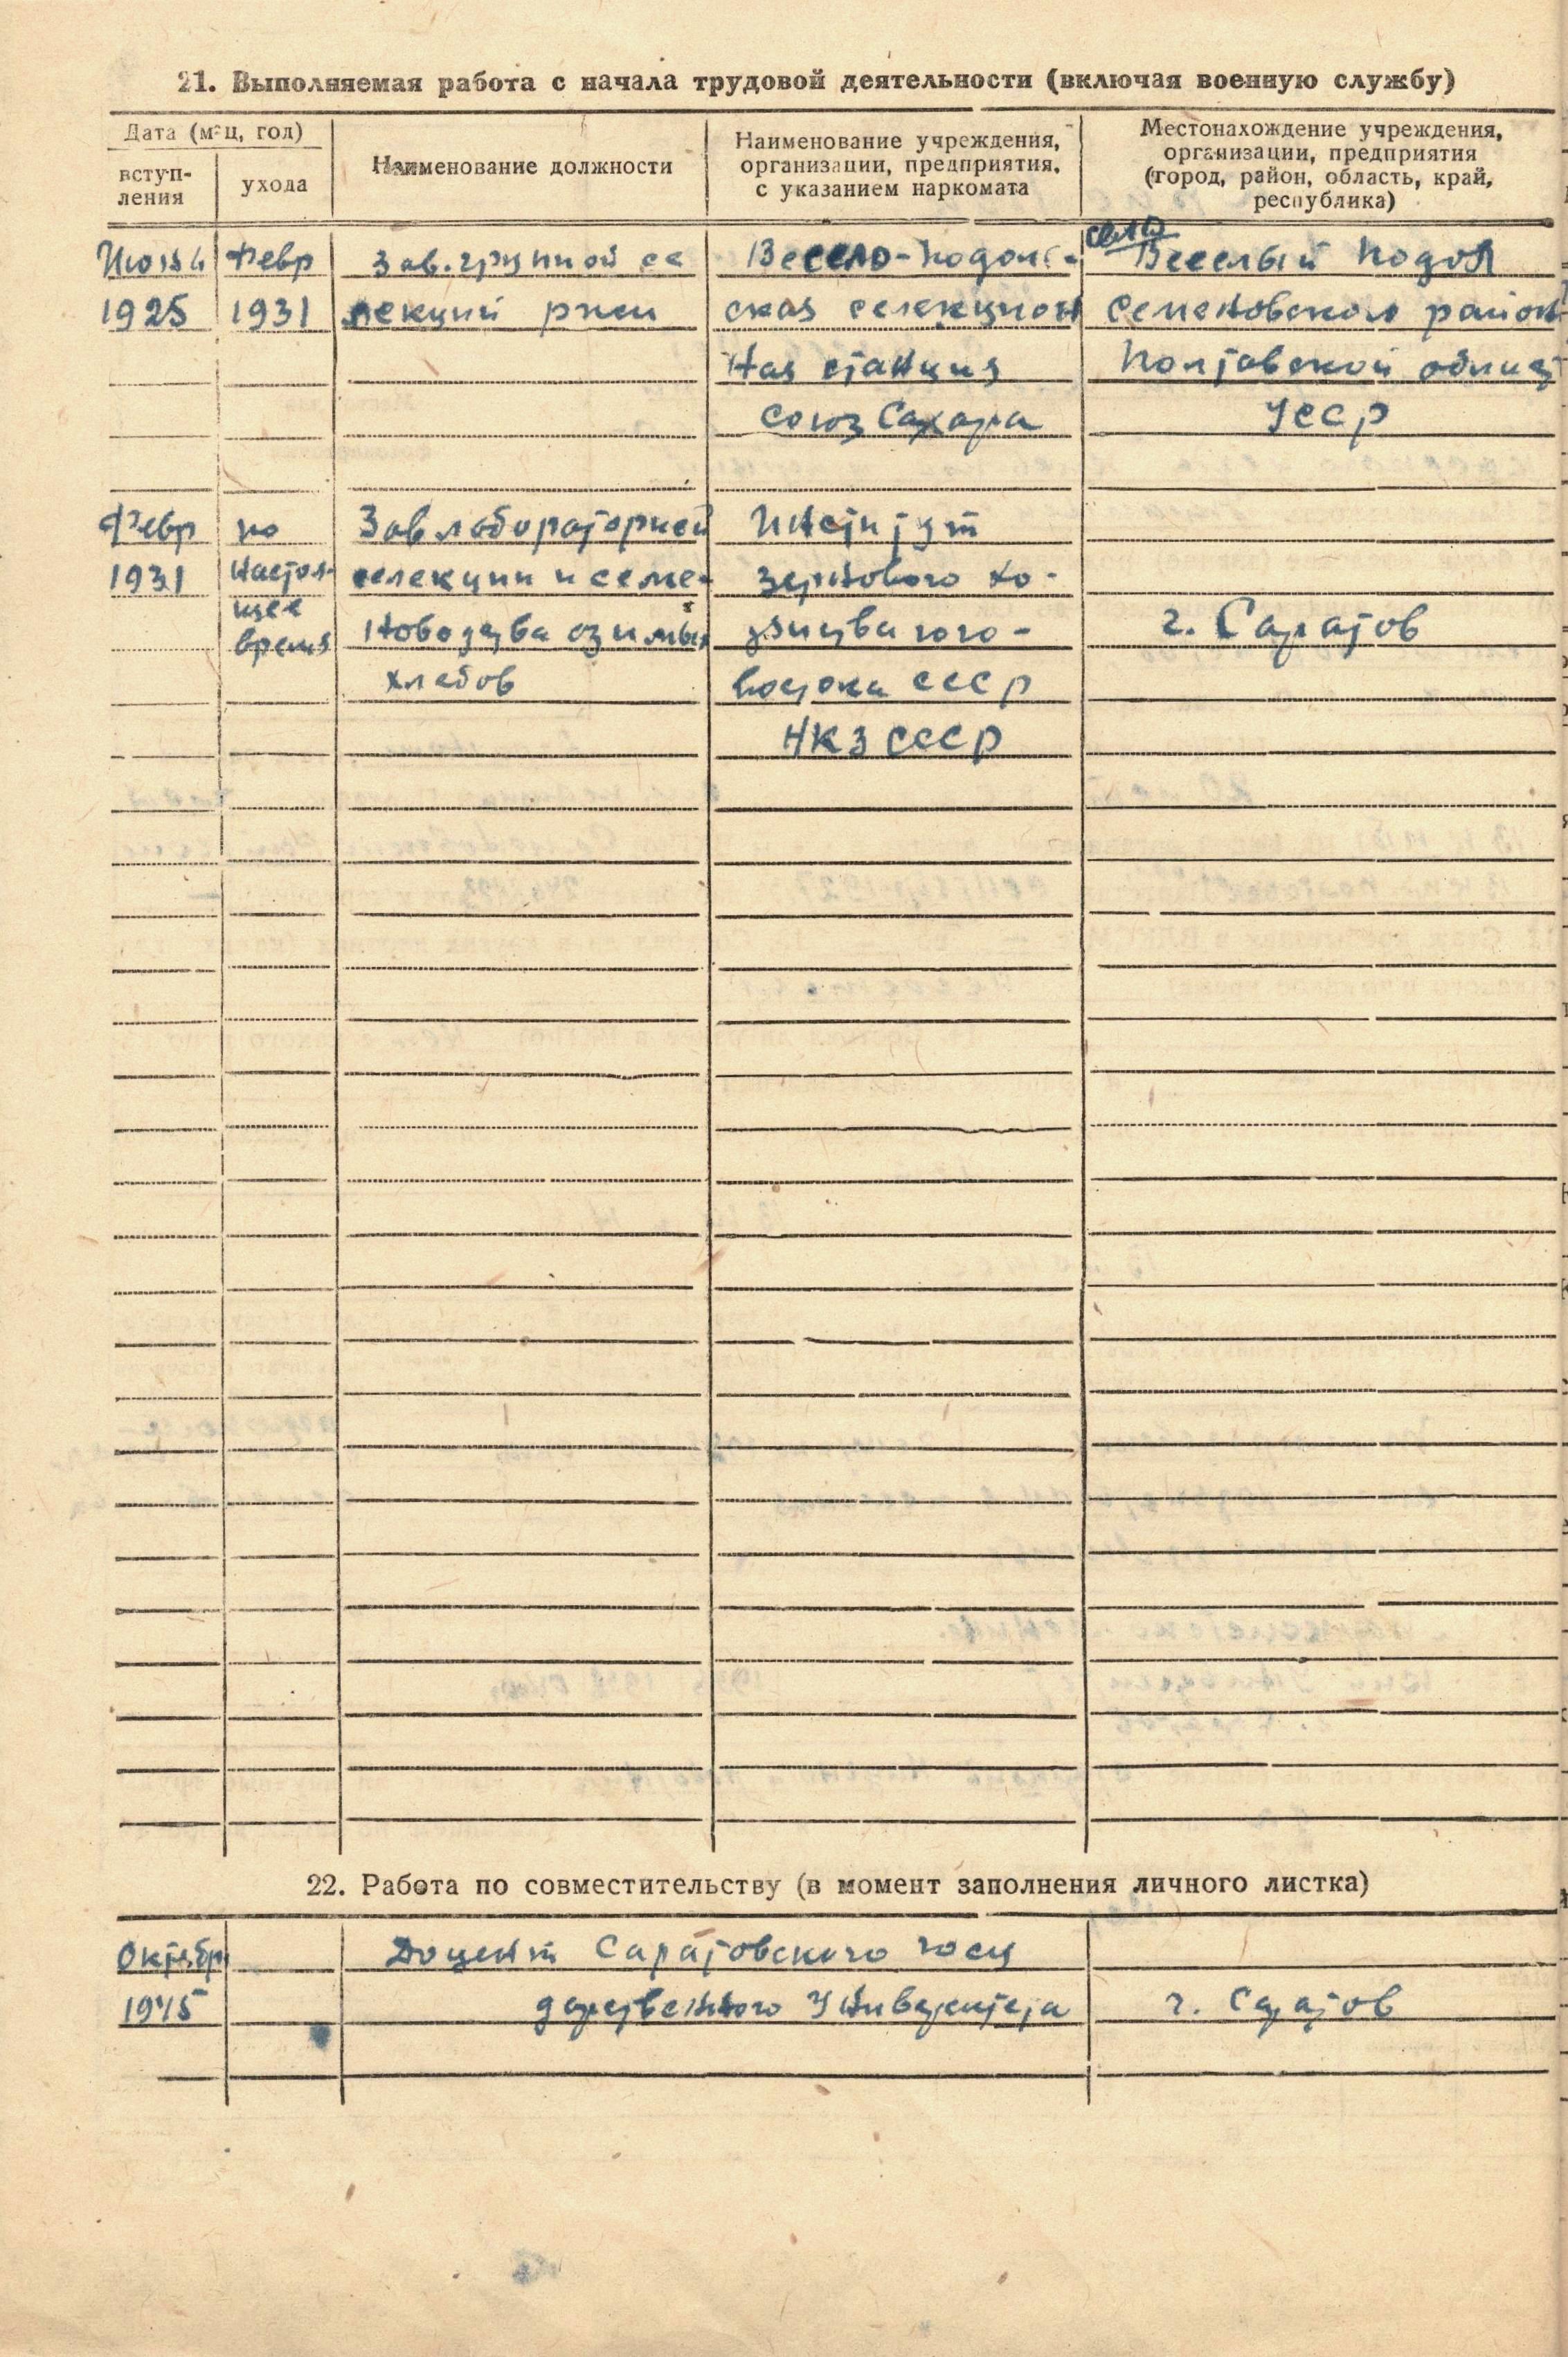 21. Выполняемая работа с начала трудовой деятельности (включая военную службу)
Дата (м-ц, год)
вступ-
ления
ухода
Наименование должности
Наименование учреждения,
организации, предприятия,
с указанием наркомата
Местонахождение учреждения,
организации, предприятия
(город, район, область, край,
республика)
село
Февр Зав. группой се Весело-Подоль- Веселый Подол
1925 1931 лекций ржи ская селекцион Семеновского район
ная станция Полтавской област
Союз Сахара УССР
Февр по Зав лабораторией Институт
1931 настоя- селекции и семе- зернового хо-
щее
время новодства озимых зяйства юго- г. Саратов
хлебов востока СССР
НКЗ СССР
22. Работа по совместительству (в момент заполнения личного листка)
Октябрь Доцент Саратовского госу
1945 дарственного Университета г. Саратов